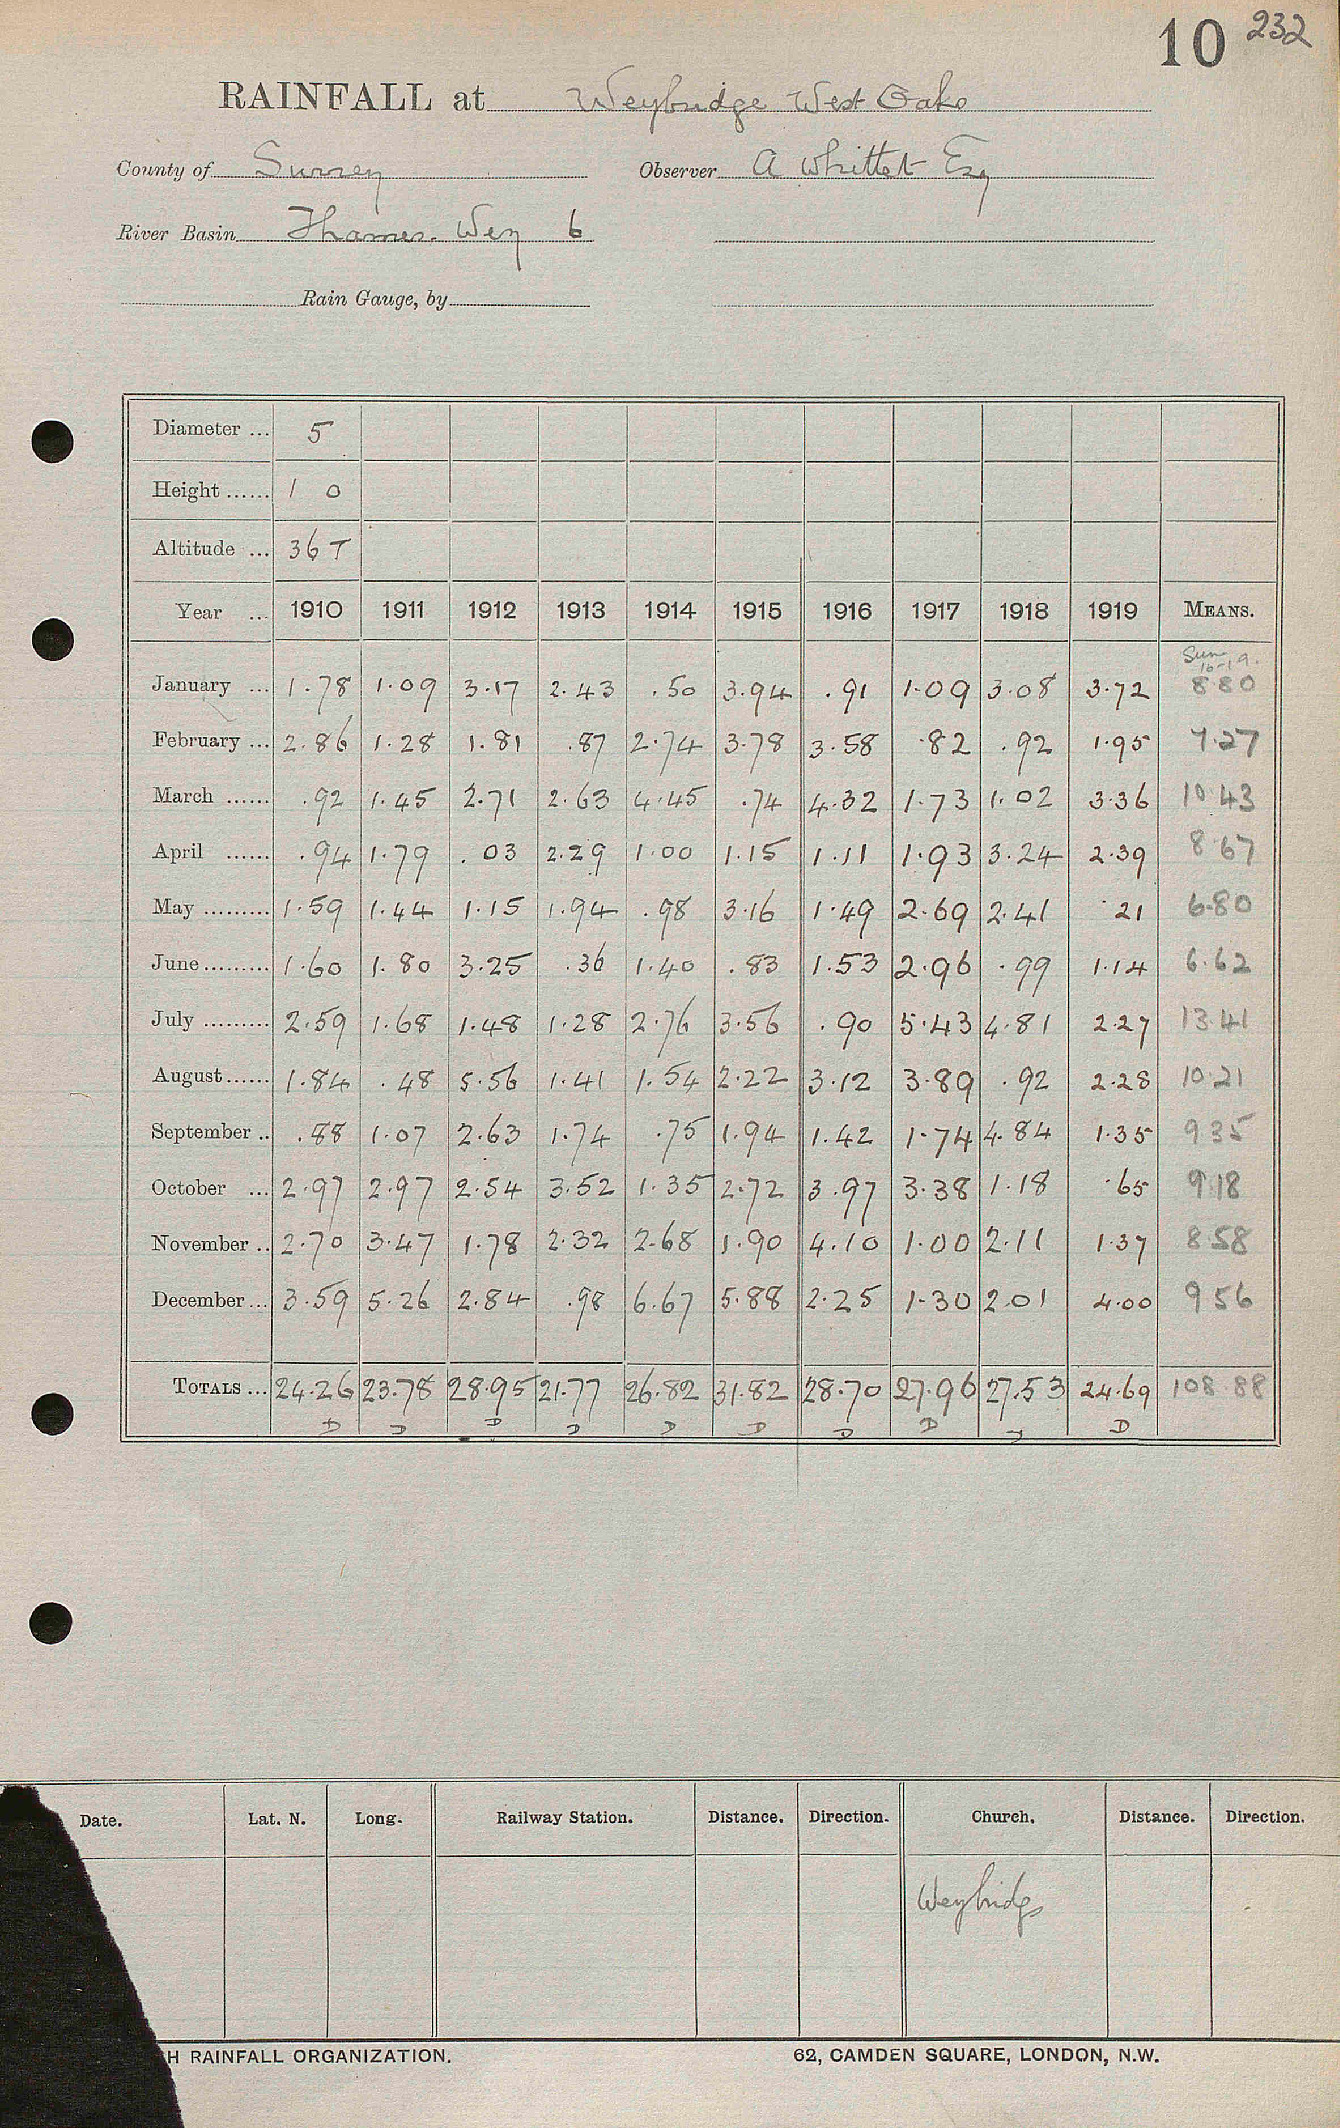 10 232
RAINFALL at Weybridge West Oaks
County of Surrey Observer A Whittet Esq
River Basin Thames. Wey 6
Rain Gauge, by
Diameter ... 5
Height ...... 1 0
Altitude ... 36 T
Year ... 1910 1911 1912 1913 1914 1915 1916 1917 1918 1919 MEANS.
Sum 16-19.
January ... 1.78 1.09 3.17 2.43 .50 3.94 .91 1.09 3.08 3.72 8.80
February ... 2.86 1.28 1.81 .87 2.74 3.78 3.58 .82 .92 1.95 7.27
March ...... .92 1.45 2.71 2.63 4.45 .74 4.32 1.73 1.02 3.36 10.43
April ...... .94 1.79 .03 2.29 1.00 1.15 1.11 1.93 3.24 2.39 8.67
May ......... 1.59 1.44 1.15 1.94 .98 3.16 1.49 2.69 2.41 .21 6.80
June ......... 1.60 1.80 3.25 .36 1.40 .83 1.53 2.96 .99 1.14 6.62
July ......... 2.59 1.68 1.48 1.28 2.76 3.56 .90 5.43 4.81 2.27 13.41
August ...... 1.84 .48 5.56 1.41 1.54 2.22 3.12 3.89 .92 2.28 10.21
September .. .88 1.07 2.63 1.74 .75 1.94 1.42 1.74 4.84 1.35 9.35
October ... 2.97 2.97 2.54 3.52 1.35 2.72 3.97 3.38 1.18 .65 9.18
November .. 2.70 3.47 1.78 2.32 2.68 1.90 4.10 1.00 2.11 1.37 8.58
December ... 3.59 5.26 2.84 .98 6.67 5.88 2.25 1.30 2.01 4.00 9.56
TOTALS ... 24.26 23.78 28.95 21.77 26.82 31.82 28.70 27.96 27.53 24.69 108.88
D D D D D D D D D
Date. Lat. N. Long. Railway Station. Distance. Direction. Church. Distance. Direction.
Weybridge
H RAINFALL ORGANIZATION. 62, CAMDEN SQUARE, LONDON, N.W.